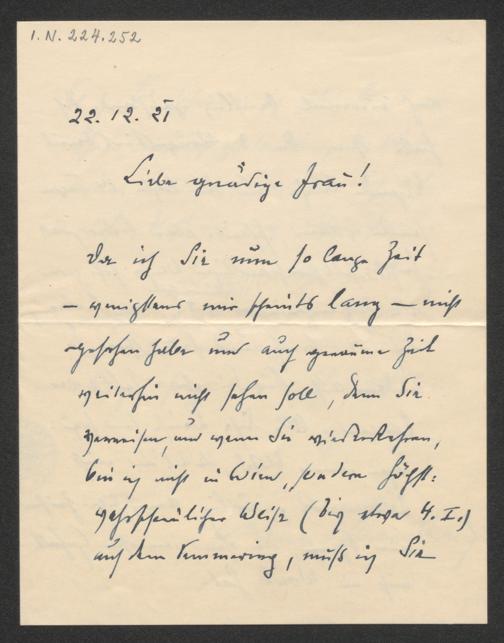 I.N. 224.252
22. 12. 21
Liebe gnädige Frau!
Da ich Sie nun so lange Zeit
– wenigstens mir scheints lang – nicht
gesehen habe und auch geraume Zeit
weiterhin nicht sehen soll, denn Sie
verreisen, und wenn Sie wiederkehren,
bin ich nicht in Wien, sondern höchst-
wahrscheinlicher Weise (bis etwa 4. I.)
auf dem Semmering, muß ich Sie